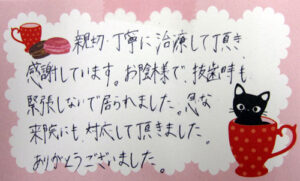 親切・丁寧に治療して頂き
感謝しています。お陰様で、抜歯時も
緊張しないで居られました。急な
来院にも対応して頂きました。
ありがとうございました。